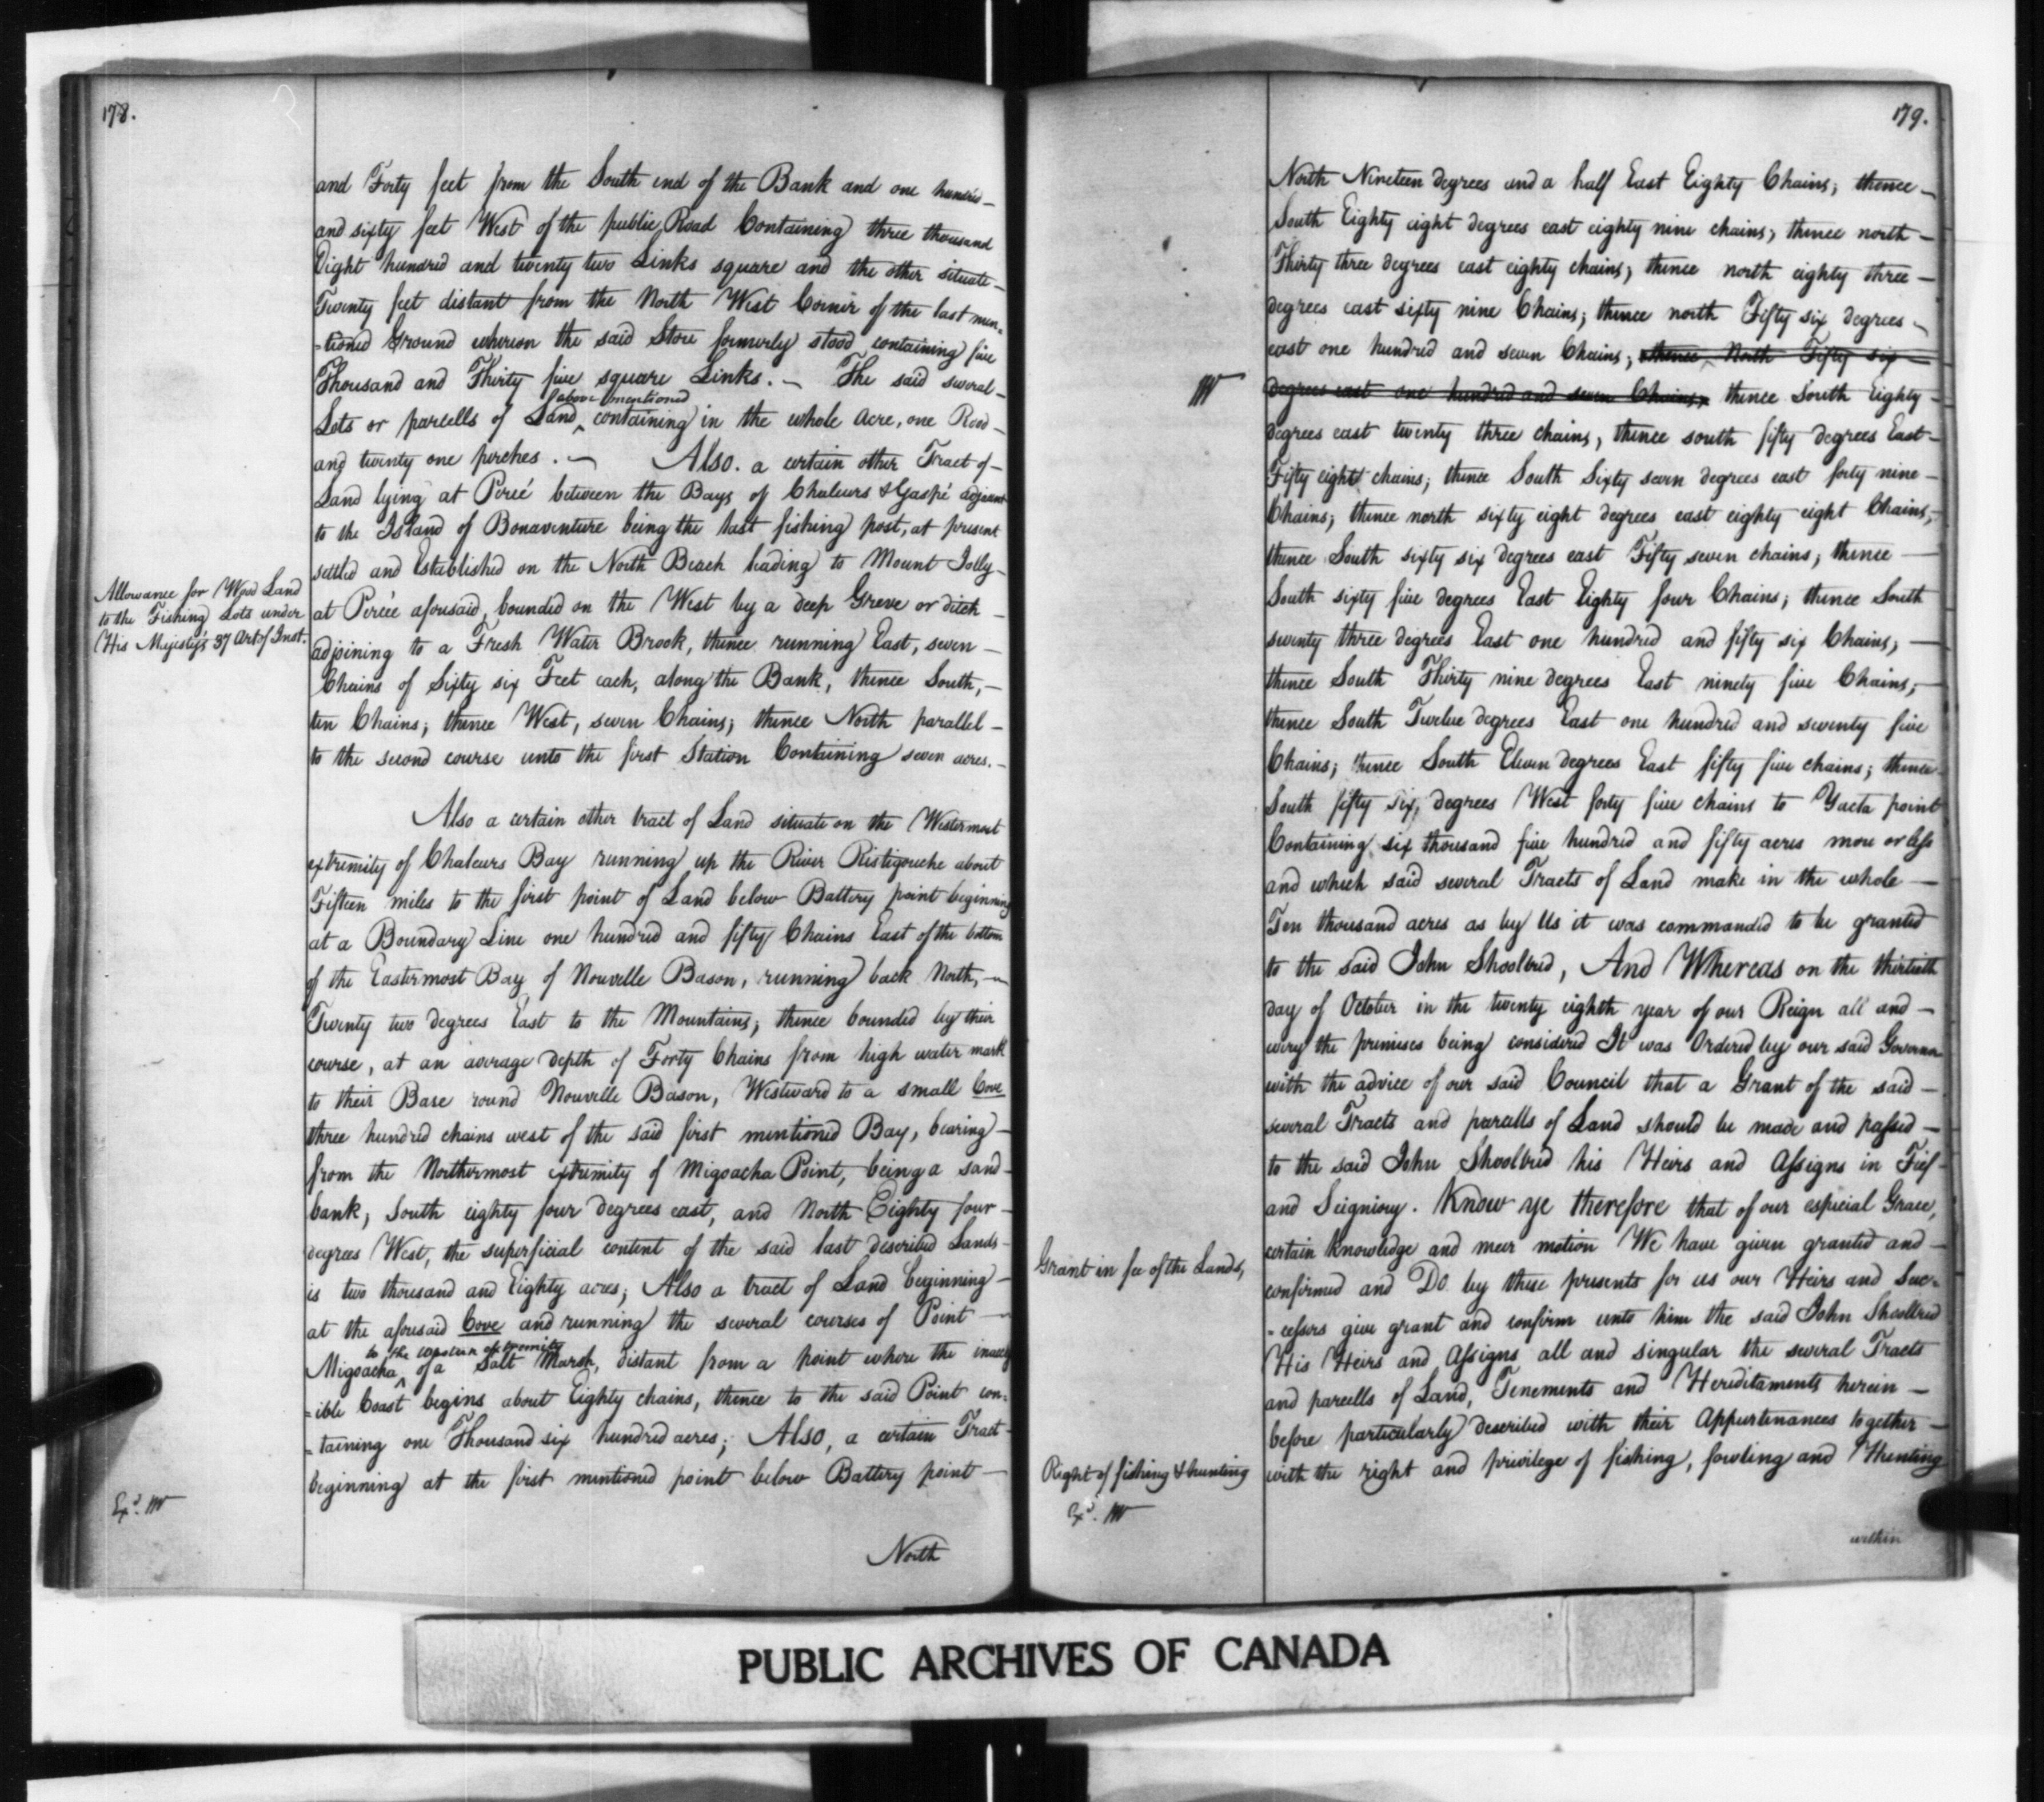 178.
and Forty feet from the South end of the Bank and one hundred
and sixty feet West of the public Road Containing three thousand
Eight hundred and twenty two Links square and the other situate
Twenty feet distant from the North West Corner of the last men-
=tioned Ground whereon the said Store formerly stood containing five
Thousand and Thirty five square Links. — The said several
above mentioned
Lots or parcells of Land ^ containing in the whole acre, one Rood
and twenty one perches. — Also. a certain other Tract of
Land lying at Percé between the Bays of Chaleurs & Gaspé adjacent
to the Island of Bonaventure being the last fishing post, at present
settled and Established on the North Beach leading to Mount Jolly
Allowance for Wood Land
to the Fishing Lots under
His Majesty's 37 Art of Inst.
at Percée aforesaid, bounded on the West by a deep Greve or ditch
adjoining to a Fresh Water Brook, thence running East, seven
Chains of Sixty six Feet each, along the Bank, thence South,
ten Chains; thence West, seven Chains; thence North parallel
to the second course unto the first Station Containing seven acres.
Also a certain other tract of Land situate on the Westermost
extremity of Chaleurs Bay running up the River Ristigouche about
Fifteen miles to the first point of Land below Battery point beginning
at a Boundary Line one hundred and fifty Chains East of the bottom
of the Eastermost Bay of Nouvelle Bason, running back North,
Twenty two degrees East to the Mountains; thence bounded by their
course, at an average depth of Forty Chains from high water mark
to their Base round Nouvelle Bason, Westward to a small Cove
three hundred chains west of the said first mentioned Bay, bearing
from the Northermost extremity of Migoacha Point, being a sand
bank, South eighty four degrees east, and North Eighty four
degrees West, the superficial content of the said last described Lands
is two thousand and Eighty acres; Also a tract of Land beginning
at the aforesaid Cove and running the several courses of Point
to the western extremity
Migoacha ^ of a Salt Marsh, distant from a point where the inacces
=ible Coast begins about Eighty chains, thence to the said Point con-
=taining one Thousand six hundred acres; Also, a certain Tract
beginning at the first mentioned point below Battery point
Exd. W
North
179.
North Nineteen degrees and a half East Eighty Chains; thence
South Eighty eight degrees east eighty nine chains, thence north
Thirty three degrees east eighty chains, thence north eighty three
degrees east sixty nine Chains; thence north Fifty six degrees
east one hundred and seven Chains; thence North Fifty six
degrees east one hundred and seven Chains, thence South Eighty
degrees east twenty three chains, thence south fifty degrees East
Fifty eight chains; thence South Sixty seven degrees east forty nine
Chains; thence north sixty eight degrees east eighty eight Chains;
thence South sixty six degrees east Fifty seven chains; thence
South sixty five degrees East Eighty four Chains; thence South
seventy three degrees East one hundred and fifty six Chains;
thence South Thirty nine degrees East ninety five Chains;
thence South Twelve degrees East one hundred and seventy five
Chains; thence South Eleven degrees East fifty five chains; thence
South fifty six, degrees West forty five chains to Yacta point
Containing six thousand five hundred and fifty acres more or less
and which said several Tracts of Land make in the whole
Ten thousand acres as by Us it was commanded to be granted
to the said John Shoolbred, And Whereas on the thirtieth
day of October in the twenty eighth year of our Reign all and
every the premises being considered It was Ordered by our said Governor
with the advice of our said Council that a Grant of the said
several Tracts and parcells of Land should be made and passed
to the said John Shoolbred his Heirs and Assigns in Fief
and Seigniory. Know ye therefore that of our especial Grace,
certain knowledge and meer motion We have given granted and
Grant in fee of the Lands,
confirmed and Do by these presents for us our Heirs and Suc-
=cessors give grant and confirm unto him the said John Shoolbred
His Heirs and Assigns all and singular the several Tracts
and parcells of Land, Tenements and Hereditaments herein
before particularly described with their Appurtenances together
with the right and privilege of fishing, fowling and Hunting
Right of fishing & hunting
Exd. W
within
PUBLIC ARCHIVES OF CANADA